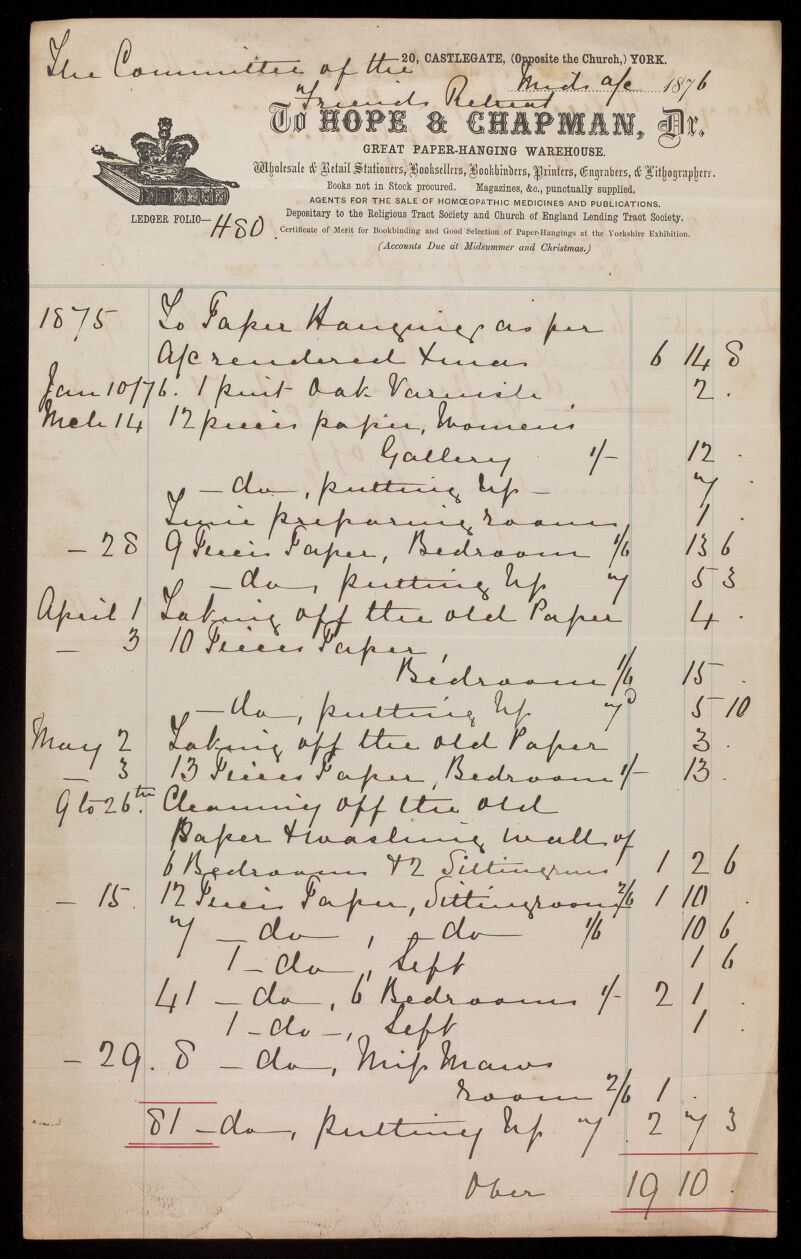 20, CASTLEGATE, (Opposite the Church,) YORK.
The Committee of the Mids a/c 1876
Friends Retreat
To HOPE & CHAPMAN, Dr.
GREAT PAPER-HANGING WAREHOUSE.
Wholesale & Retail Stationers, Booksellers, Bookbinders, Printers, Engravers, & Lithographers.
Books not in Stock procured. Magazines, &c., punctually supplied.
AGENTS FOR THE SALE OF HOMŒOPATHIC MEDICINES AND PUBLICATIONS.
LEDGER FOLIO— 480
Depositary to the Religious Tract Society and Church of England Lending Tract Society.
Certificate of Merit for Bookbinding and Good Selection of Paper-Hangings at the Yorkshire Exhibition.
(Accounts Due at Midsummer and Christmas.)
1875 To Paper Hanging as per
a/c rendered Xmas 6 14 8
Jan 10/76. 1 pint Oak Varnish 2 .
Mch 14 12 pieces paper, Womens
Gallery 1/- 12 .
— do —, putting Up — 7 .
Time preparing room 1 .
— 28 9 Pieces Paper, Bedroom 1/6 13 6
— do —, putting Up 7 5 3
April 1 Taking off the old Paper 4 .
— 3 10 Pieces Paper,
Bedroom 1/6 15 .
— do —, putting Up 7d 5 10
May 2 Taking off the old Paper 3 .
— 3 13 Pieces Paper, Bedroom 1/- 13 .
9 to 26th. Cleaning off the old
Paper & washing wall of
6 Bedrooms & 2 Sittingrms 1 2 6
— 15. 12 Pieces Paper, Sittingroom 2/6 1 10 .
7 — do —, — do — 1/6 10 6
1 — do —, Left 1 6
41 — do —, 6 Bedrooms 1/- 2 1 .
1 — do —, Left 1 .
— 29. 8 — do —, Miss Maws
room 2/6 1 .
81 — do —, putting Up 7 2 7 3
Over 19 10 .